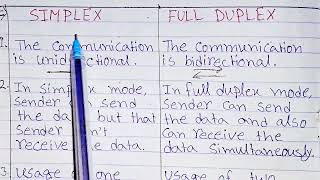 SIMPLEX
FULL DUPLEX
1.
The communication
is unidirectional.
The communication
is bidirectional.
2.
In simplex mode,
Sender can send
the data but that
Sender
receive the data.
In full duplex mode,
Sender can send
the data and also
Can receive the
data simultaneously.
3.
Usage of one
Usage of two